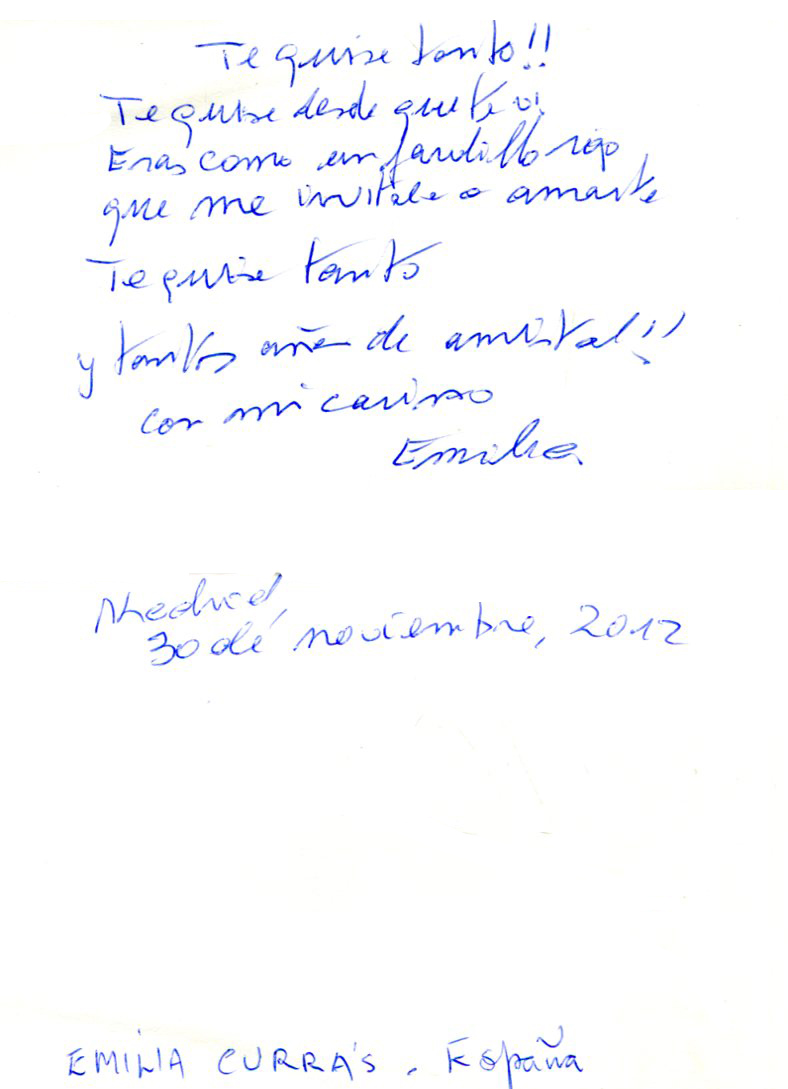 Te quise tanto!!
Te quise desde que te vi
Eras como un fardillo rojo
que me invitabas a amarte
Te quise tanto
y tantos años de amistad!!
con mi cariño
Emilia
Madrid,
30 de noviembre, 2012
EMILIA CURRÁS. España